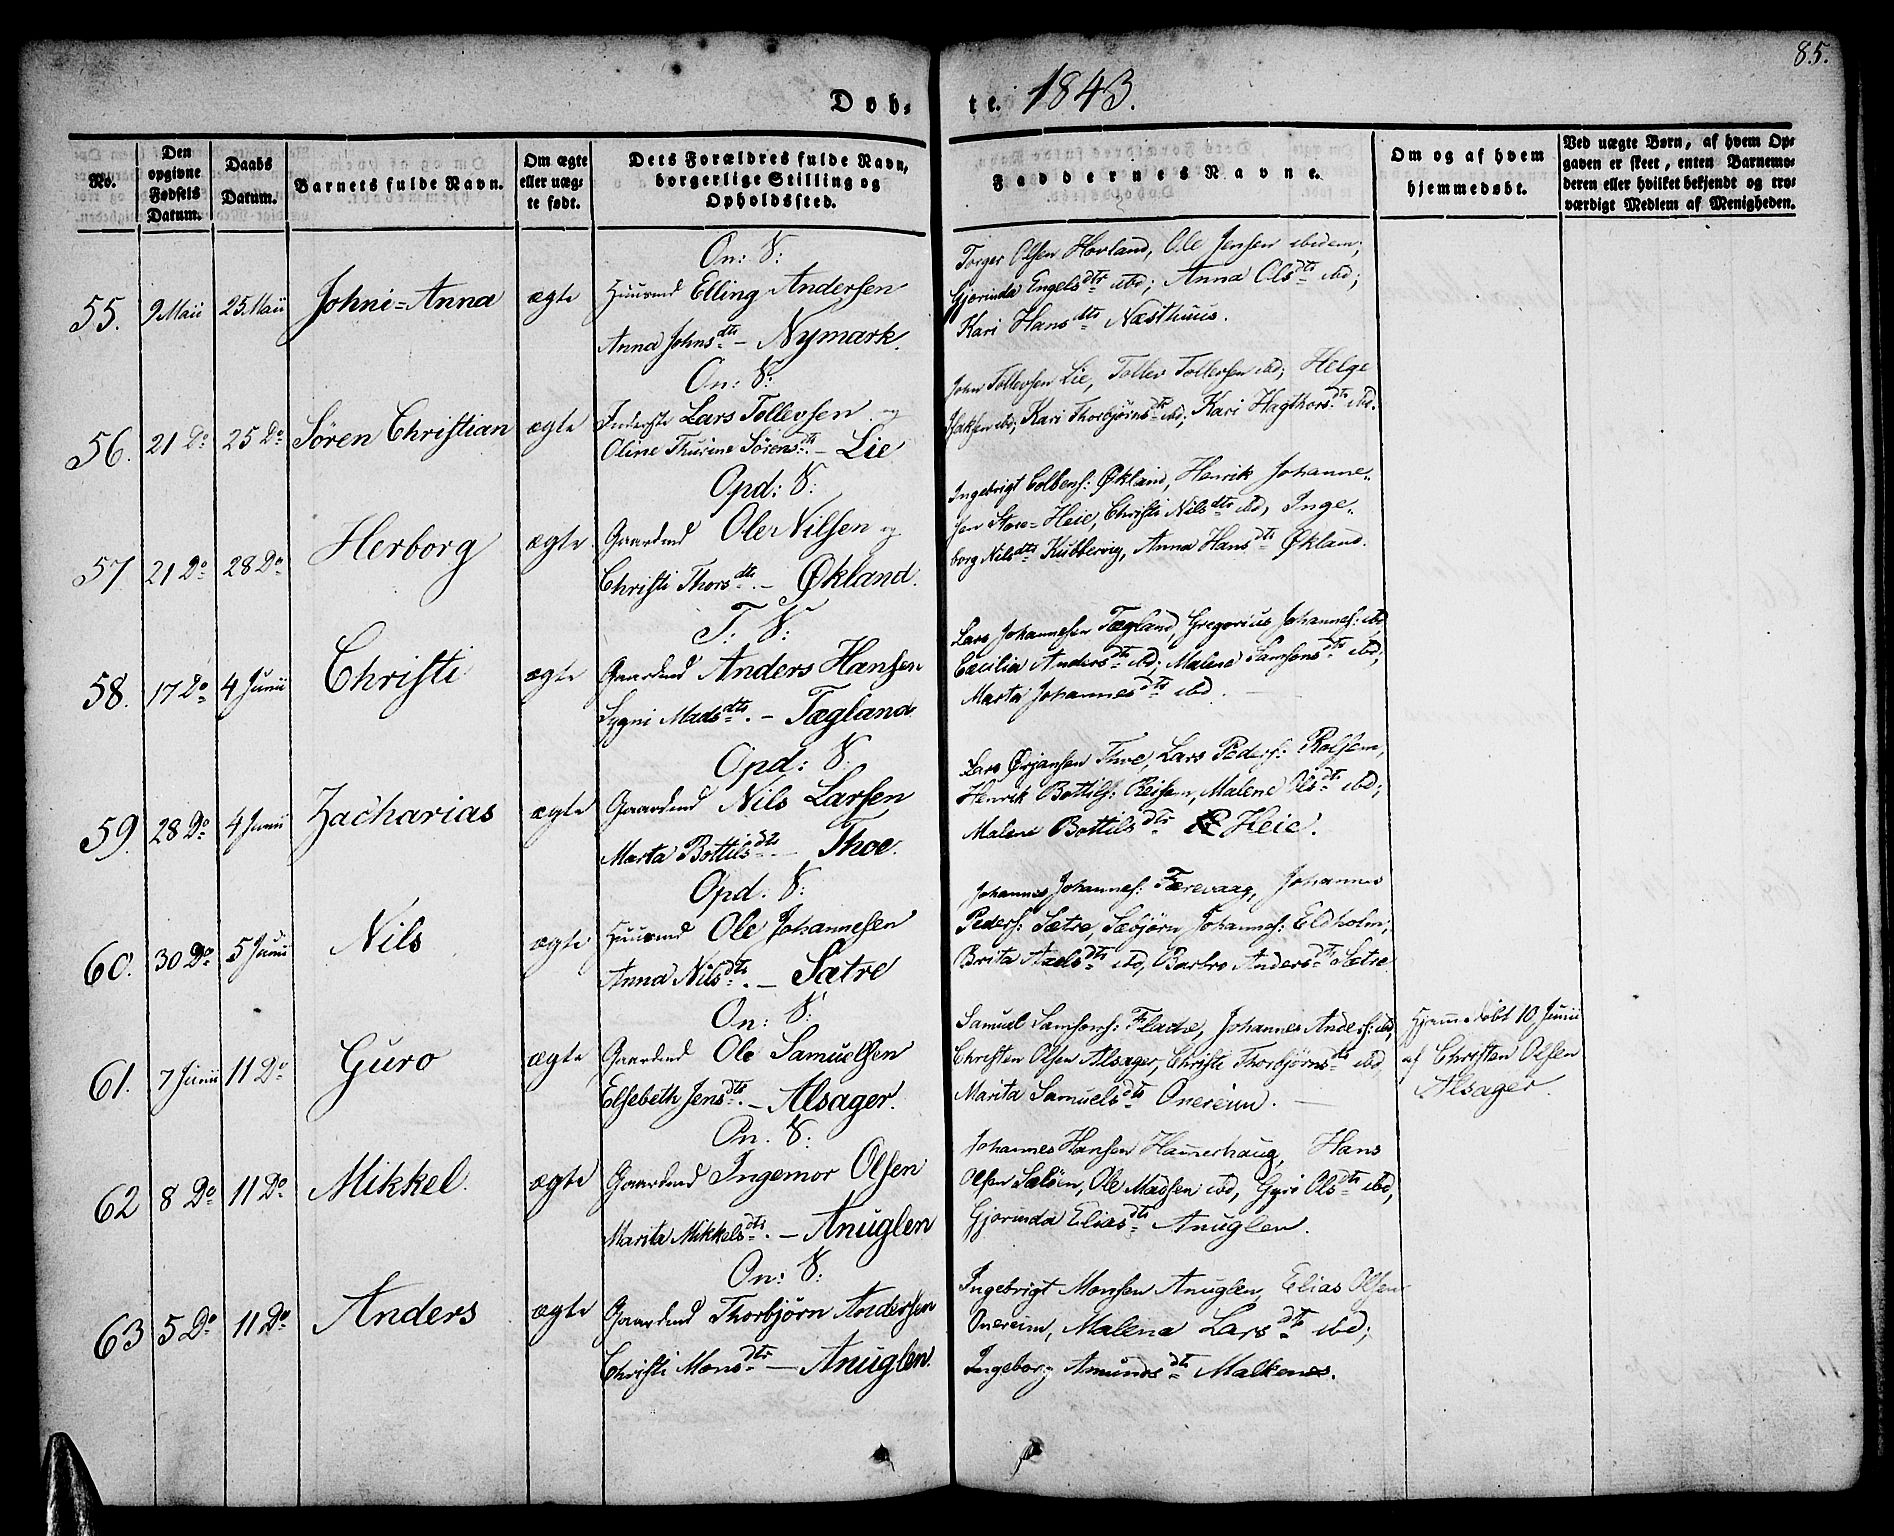 85.
Døb-
te. 1843.
No.
Den opgivne Fødsels Datum.
Daabs Datum.
Barnets fulde Navn.
Om ægte eller uægte født.
Dets Forældres fulde Navn, borgerlige Stilling og Opholdssted.
Faddernes Navne.
Om og af hvem hjemmedøbt.
Ved uægte Børn, af hvem Op-
gaven er skeet, enten Barnemo-
deren eller hvilket bekjendt og tro-
værdigt Medlem af Menigheden.
On: S:
55. 9 Maii 25 Maii Johni=Anna ægte Huusmd Elling Andersen
Anna Johnsdtr. – Nymark.
Torger Olsen Hovland, Ole Jensen ibidem;
Gjorinda Engelsdtr ibd; Anna Olsdtr ibd;
Kari Hansdtr Næsthuus.
On: S:
56. 21 Do 25 Do Søren Christian ægte Inderste Lars Tollevsen og
Oline Thurine Sørensdtr. – Lie
John Tollevsen Lie, Tollev Tollevsen ibd; Helge
Isaksen ibd; Kari Thorbjørnsdtr ibd; Kari Hagthorsdtr ibd.
Opd: S:
57 21 Do 28 Do Herborg ægte Gaardmd Ole Nilsen og
Christi Thorsdtr. – Økland.
Ingebrigt Colbens: Økland, Henrik Johanne-
sen Store=Heie, Christi Nilsdtr ibd, Inge-
borg Nilsdtr Kubbervig, Anna Hansdtr Økland.
T: S:
58. 17 Do 4 Junii Christi ægte Gaardmd Anders Hansen
Sygni Madsdtr. – Tægland
Lars Johannesen Tægland, Gregorius Johannes: ibd
Cæcilia Andersdtr ibd; Malena Samsonsdtr ibd;
Marta Johannesdtr ibd.
Opd: S:
59. 28 Do 4 Junii Zacharias ægte Gaardmd Nils Larsen
Marta Bottilsdtr. – Thoe.
Lars Ørjansen Thoe, Lars Peders: Rolfsem,
Henrik Bottils: Reisen, Malene Olsdtr ibd;
Malene Bottilsdtr Heie.
Opd: S:
60. 30 Do 5 Junii Nils ægte Huusmd Ole Johannesen
Anna Nilsdtr. – Sætre
Johannes Johannes: Færevaag, Johannes
Peders: Sætre, Sæbjørn Johannes: Eldholm;
Brita Axelsdtr ibd, Barbro Andersdtr Sætre
On: S:
61. 7 Junii 11 Do Guro ægte Gaardmd Ole Samuelsen
Elsebeth Jensdtr. – Alsager.
Samuel Samsons: Fladve, Johannes Anders: ibd,
Christen Olsen Alsager, Christi Thorbjørnsdtr ibd,
Marita Samuelsdtr Onereim.
Hjemmedøbt 10 Junii
af Christen Olsen
Alsager.
On. S:
62 8 Do 11 Do Mikkel. ægte Gaardmd Ingemor Olsen
Marita Mikkelsdtr. – Anuglen
Johannes Hansen Hammerhaug, Hans
Olsen Seløen, Ole Madsen ibd, Gyri Olsdtr ibd,
Gjorinda Eliasdtr Anuglen.
On: S:
63 5 Do 11 Do Anders ægte Gaardmd Thorbjørn Andersen
Christi Monsdtr – Anuglen.
Ingebrigt Monsen Anuglen, Elias Olsen
Onereim, Malena Larsdtr ibd;
Ingeborg Amundsdtr Malkenes.